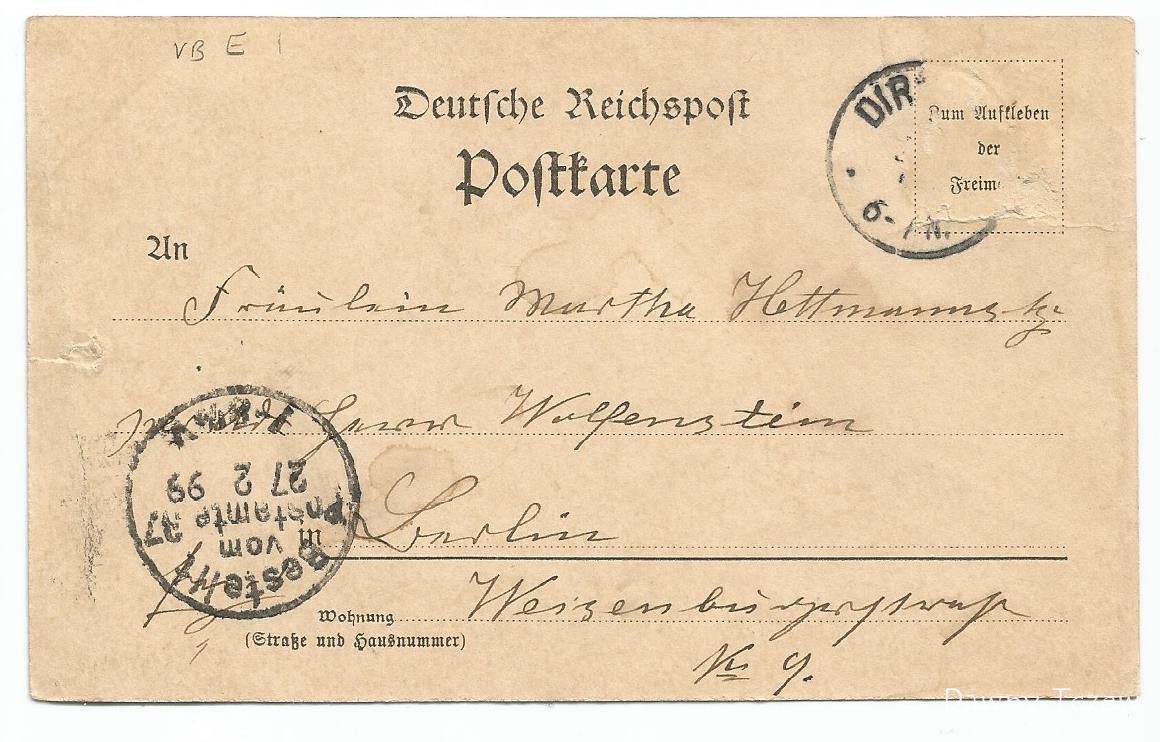 VB E 1
Deutsche Reichspost
Postkarte
DIR
Zum Aufkleben
der
Freim
6-7N.
An
Fräulein Martha Hettmannsk
Herrn Wolfenstein
27 2 99
Bestellt
vom
Postamte 37
in Berlin
Weizenburgerstraße
Wohnung
(Straße und Hausnummer)
No 9.
Dawny Tczew